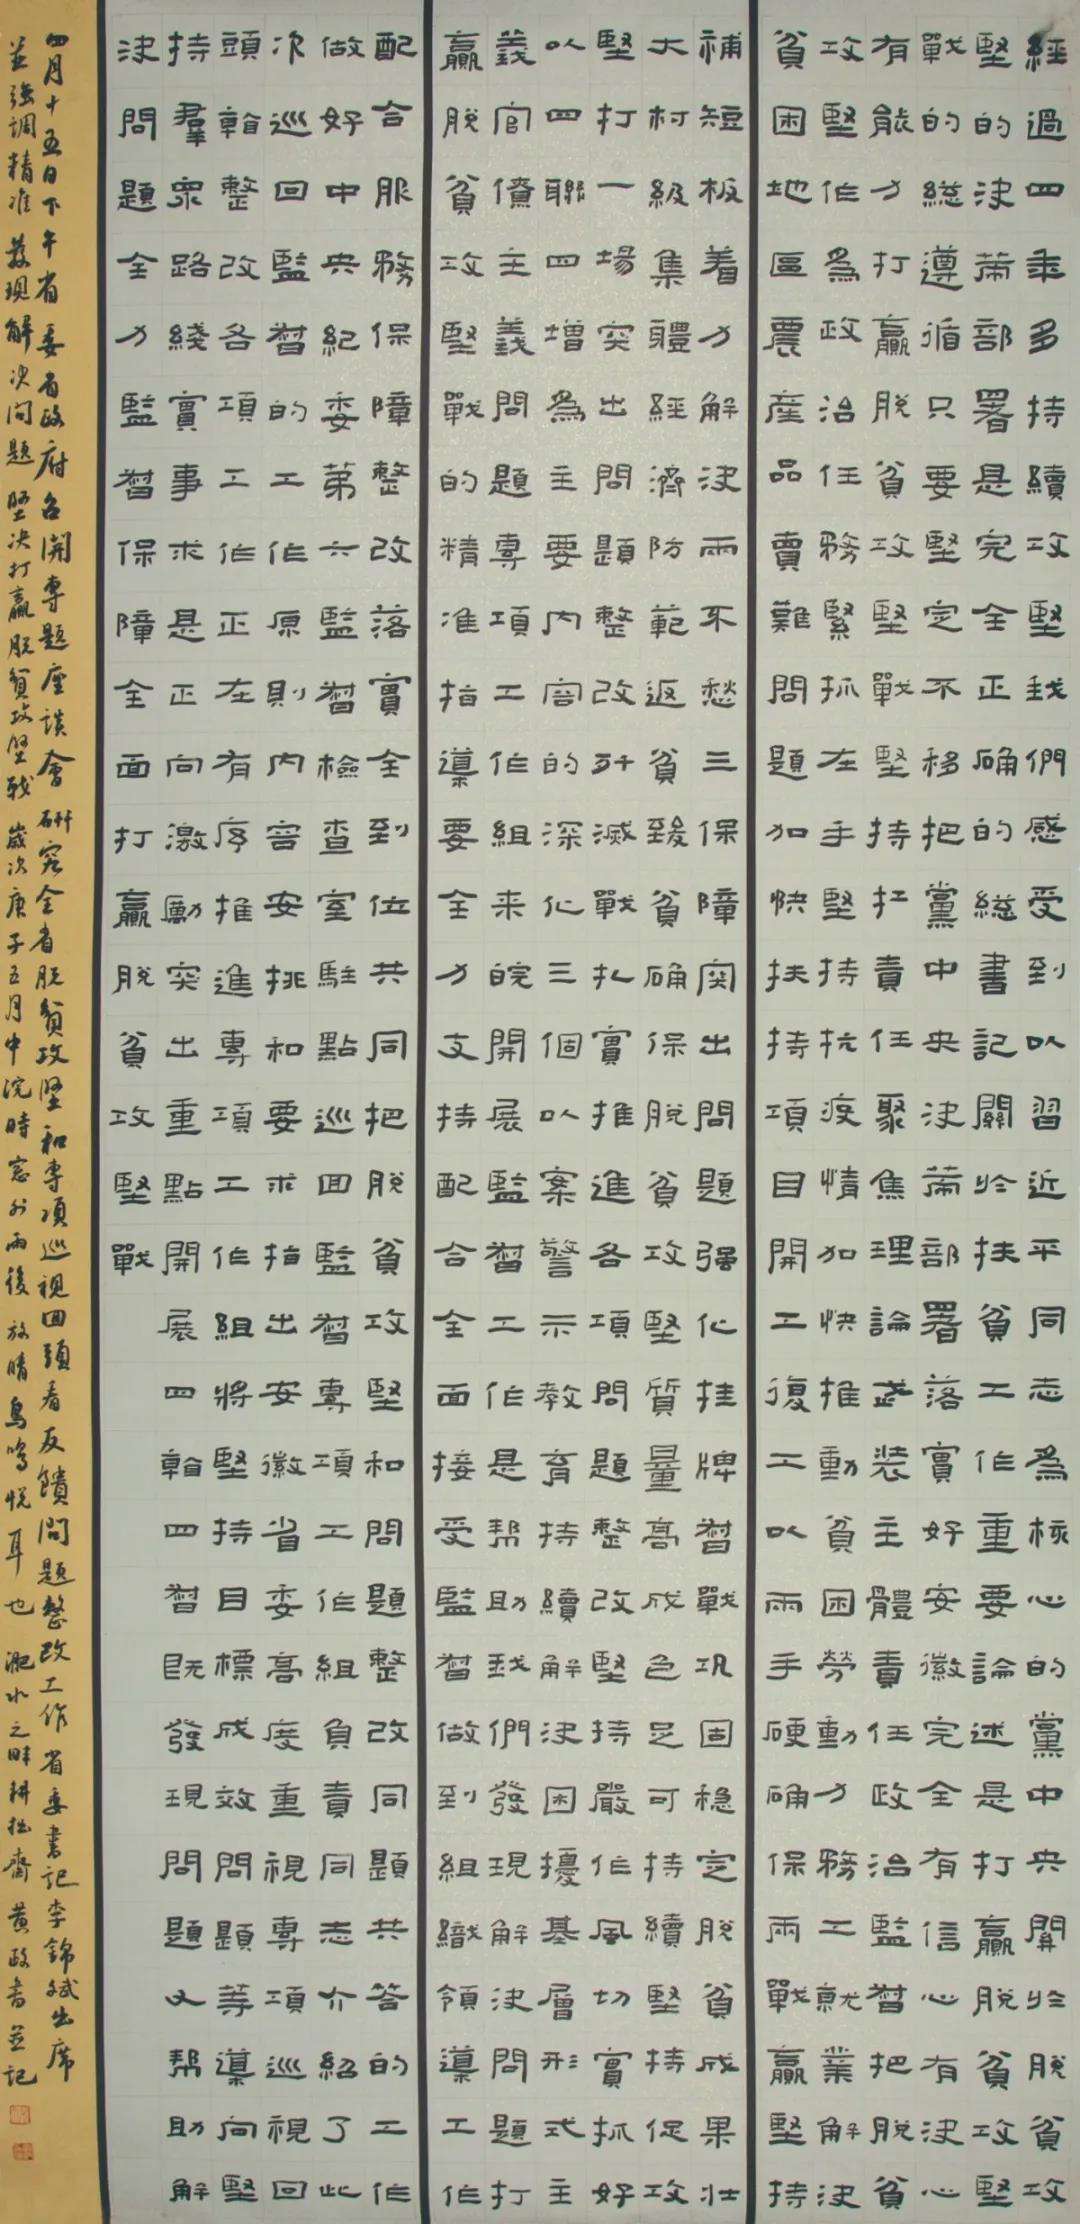 經過四年多持續攻堅我們感受到以習近平同志為核心的黨中央關於脫貧攻
堅的決策部署是完全正確的總書記關於扶貧工作重要論述是打贏脫貧攻堅
戰的總遵循只要堅定不移把黨中央決策部署落實好安徽完全有信心有決心
有能力打贏脫貧攻堅戰堅持扛責任聚焦理論武裝主體責任政治監督把脫貧
攻堅作為政治任務緊抓在手堅持抗疫情加快推動貧困勞動力務工就業解決
貧困地區農產品賣難問題加快扶持項目開工復工以兩手硬確保兩戰贏堅持
補短板着力解決兩不愁三保障突出問題强化挂牌督戰巩固稳定脫貧成果壯
大村級集體經濟防範返貧致貧確保脫貧攻堅質量高成色足可持續堅持促攻
堅打一場突出問題整改殲滅戰扎實推進各項問題整改堅持嚴作風切實抓好
以四聯四增為主要內容的深化三個以案警示教育持續解決困擾基層形式主
義官僚主義問題專項工作組來皖開展監督工作是幫助我們發現解決問題打
贏脫貧攻堅戰的精准指導要全力支持配合全面接受監督做到組織領導工作
配合服務保障整改落實全到位共同把脫貧攻堅和問題整改同題共答的工作
做好中央紀委第六監督檢查室駐點巡回監督專項工作組負責同志介紹了此
次巡回監督的工作原則內容安排和要求指出安徽省委高度重視專項巡視回
頭看整改各項工作正在有序推進專項工作組將堅持目標成效問題等導向堅
持羣眾路綫實事求是正向激勵突出重點開展四看四督既發現問題又幫助解
決問題全力監督保障全面打贏脫貧攻堅戰
四月十五日下午省委省政府召開專題座談會研究全省脫貧攻堅和專項巡視回頭看反饋問題整改工作省委書記李錦斌出席
並強調精准發現解決問題堅決打贏脫貧攻堅戰歲次庚子五月中浣時窗外雨後放晴鳥鳴悅耳也淝水之畔耕拙齋黃政書並記